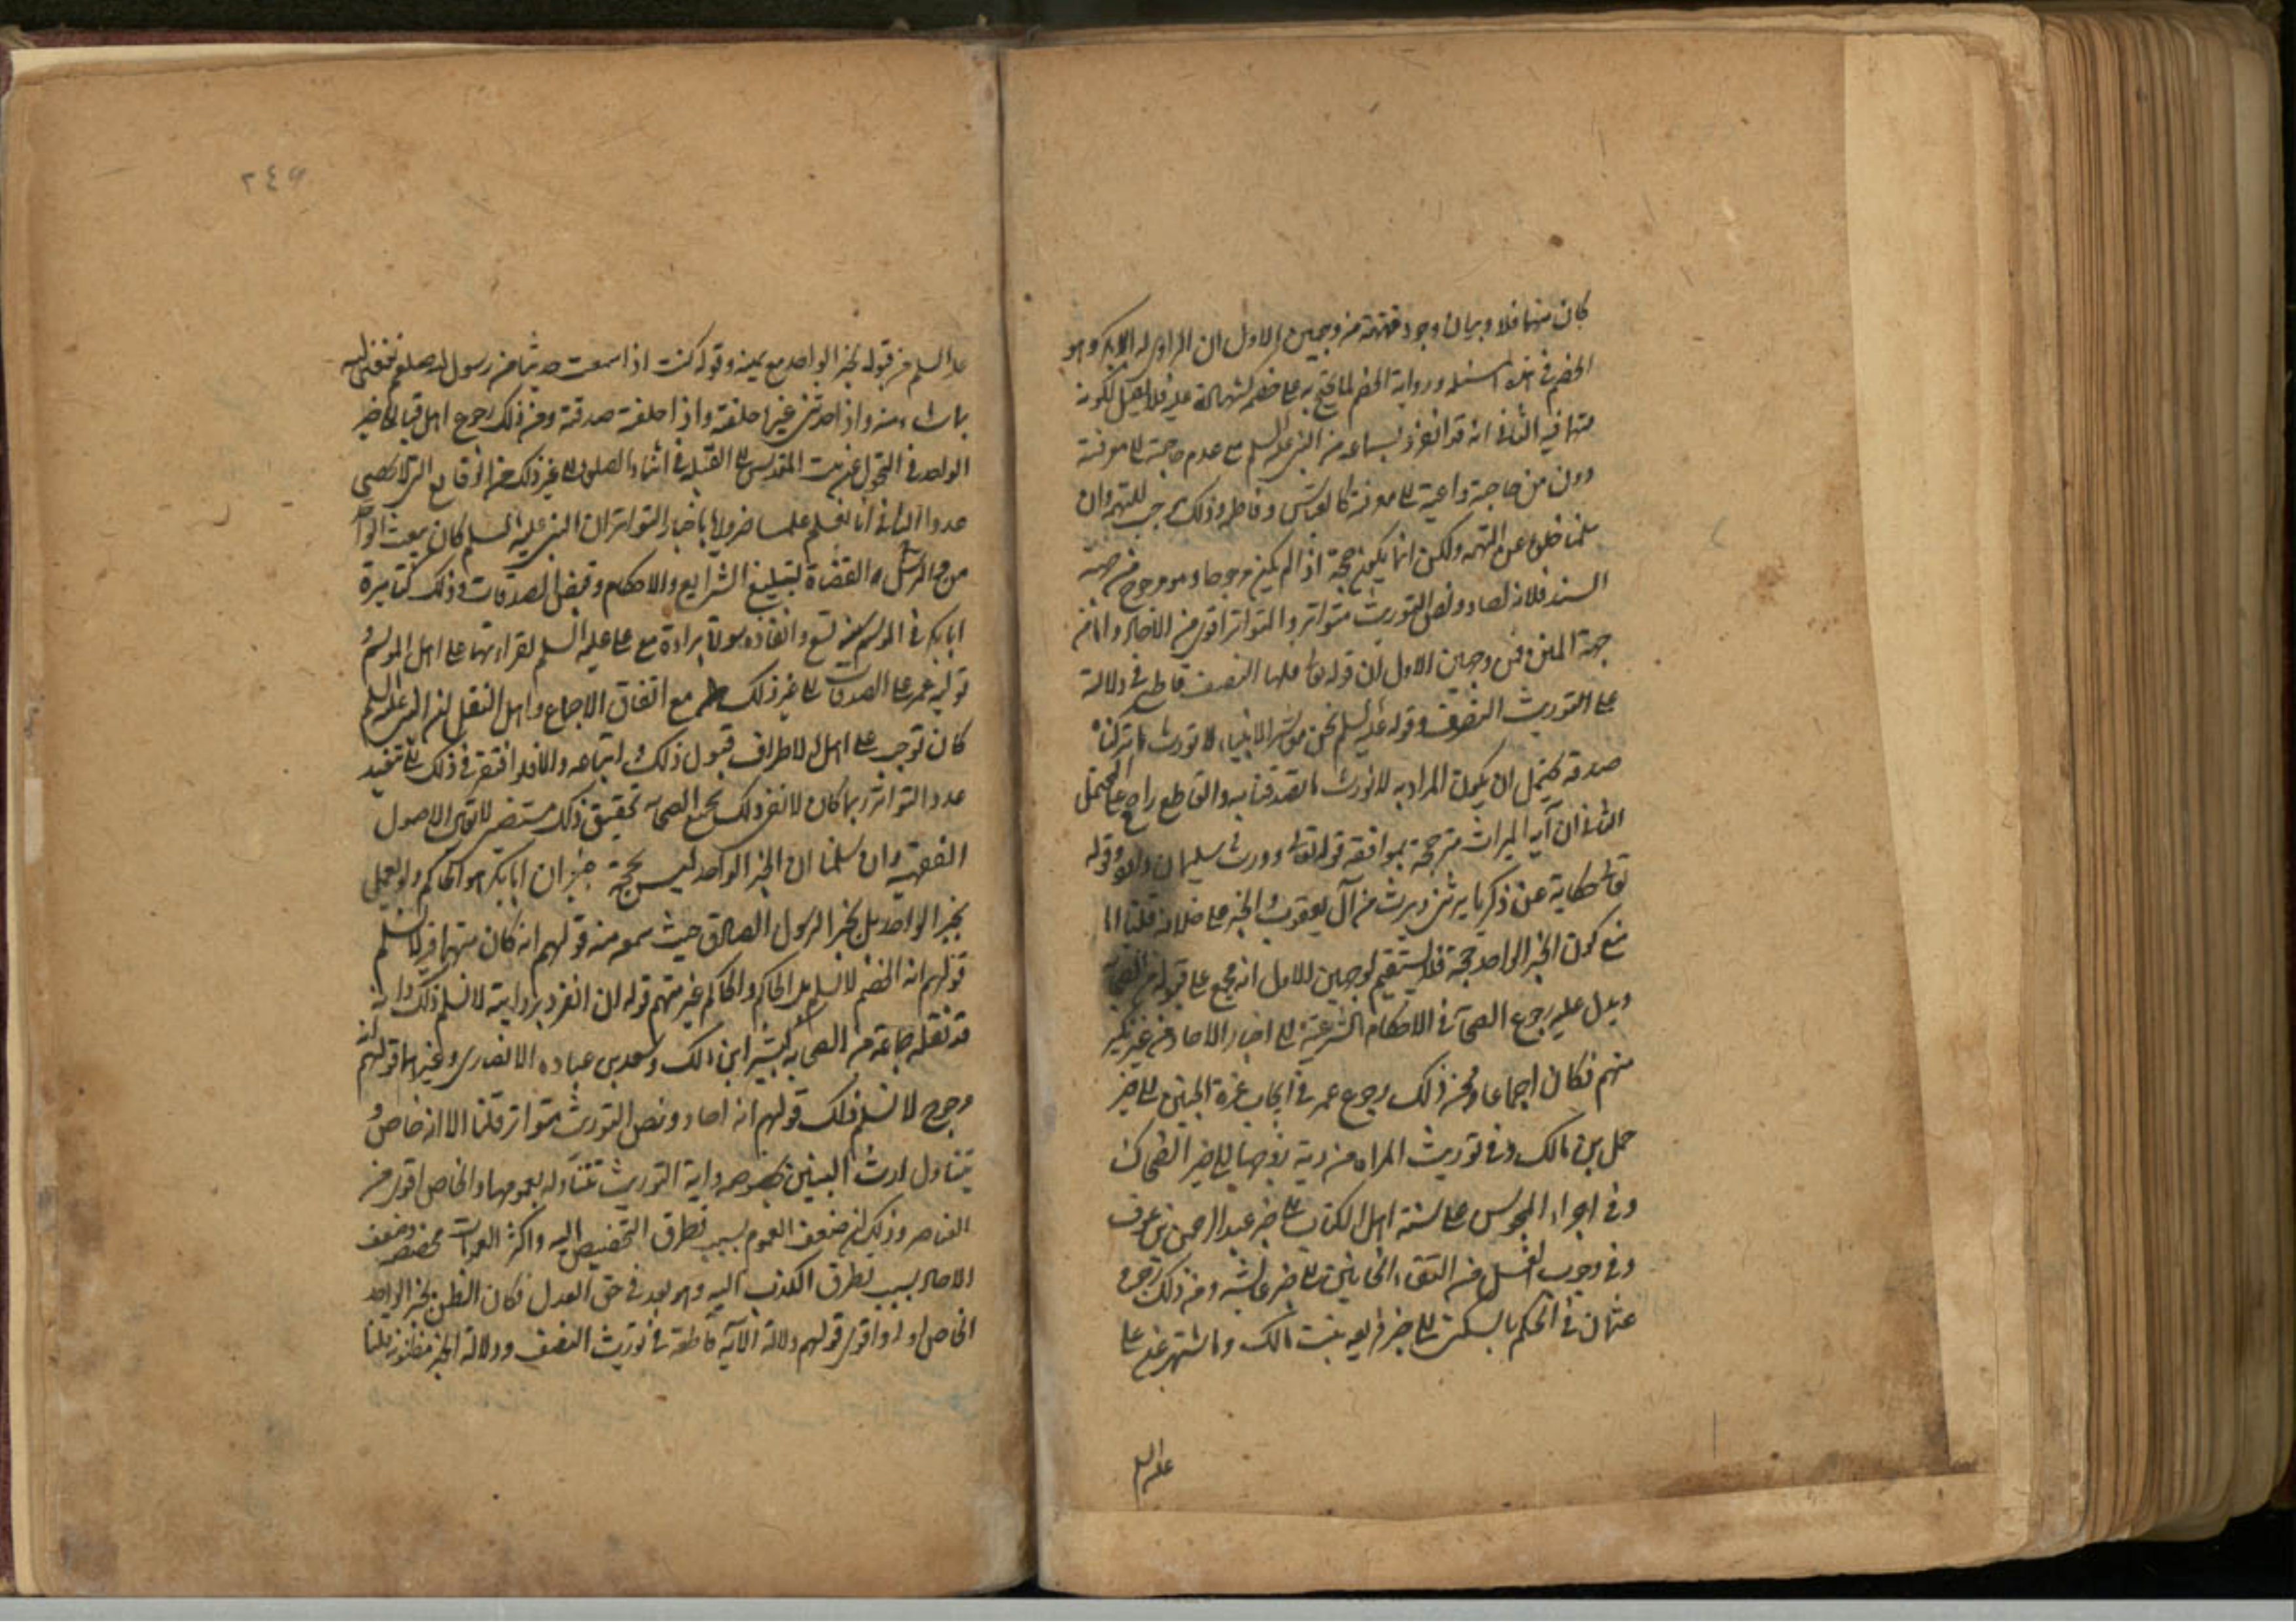 كان متهما فلا وبيان وجود تهمته من وجهين الاول ان الراوى له ابو بكر وهو
الخصم فى هذه المسئله ورواية الخصم لما يحتج به على خصمه كشهادة عليه فلا يقبل لكونه
متهما فيه الثانى انه قد انفرد بسماعه من النبى عليه السلم مع عدم حاجته الى معرفته
دون من حاجته داعية الى معرفته كالعباس وفاطمه وذلك موجب للتهمه وان
سلمنا خلوه عن التهمه ولكن انما يكون حجة اذا لم يكن مرجوحا وهو مرجوح من جهة
السند فلانه احاد ونص التوريث متواتر والمتواتر اقوى من الاحاد واما من
جهة المتن فمن وجهين الاول ان قوله تعا فلها النصف قاطع فى دلالته
على التوريث النصف وقوله عليه السلم نحن معاشر الانبياء لا نورث ما تركناه
صدقة يحتمل ان يكون المراد به لا نورث ما تصدقنا به والقاطع راجح على المحتمل
الثانى ان آية الميراث مترجحة بموافقة قوله تعا وورث سليمان داود وقوله
تعا حكاية عن زكريا يرثنى ويرث من آل يعقوب والخبر على خلافه قلنا اما
منع كون الخبر الواحد حجة فلا يستقيم لوجهين الاول انه مجمع على قبوله من الصحابه
ويدل عليه رجوع الصحابة فى الاحكام الشرعية الى اخبار الاحاد من غير نكير
منهم فكان اجماعا ومن ذلك رجوع عمر فى ايجاب غرة الجنين الى خبر
حمل بن مالك وفى توريث المراه من دية زوجها الى خبر الضحاك
وفى اجراء المجوس على سنة اهل الكتاب على خبر عبد الرحمن بن عوف
وفى وجوب الغسل من التقاء الختانين الى خبر عايشه ومن ذلك رجوع
عثمان فى الحكم بالسكنى الى خبر فريعه بنت مالك وما اشتهر عن على
عليه السلم
٢٤٩
عليه السلم من قبوله لخبر الواحد مع يمينه وقوله كنت اذا سمعت حديثا من رسول الله صلعم نفعنى الله
بما شاء منه واذا حدثنى غيره احلفته واذا حلفته صدقته ومن ذلك رجوع اهل قبا الى خبر
الواحد فى التحول عن بيت المقدس الى القبله فى اثناء الصلوة الى غير ذلك من الوقايع التى لا تحصى
عددا الثانى انا نعلم علما ضروريا باخبار التواتر ان النبى عليه السلم كان يبعث الواحد
من الرسل والقضاة لتبليغ الشرايع والاحكام وقبض الصدقات وذلك كتاميره
ابا بكر فى الموسم سنه تسع وانفاذه سورة براءة مع على عليه السلم لقراءتها على اهل الموسم و
توليه عمر على الصدقات الى غير ذلك مع اتفاق الاجماع واهل النقل ان النبى عليه السلم
كان توجب على اهل الاطراف قبول ذلك واتباعه والا فلو افتقر فى ذلك الى تنفيذ
عدد التواتر ربما كان لا يفى ذلك بجميع الصحابه تحقيق ذلك مستقصى لايق بالاصول
الفقهيه وان سلمنا ان الخبر الواحد ليس بحجة غير ان ابا بكر هو الحاكم ولم يعمل
بخبر الواحد بل بخبر الرسول الصادق حيث سمعه منه قولهم انه كان متهما فيه لا نسلم
قولهم انه الخصم لا نسلم بل الحاكم والحاكم غير متهم قوله ان انفرد بروايته لا نسلم ذلك وانه
قد نقله جماعة من الصحابه ابن مالك وسعد بن عباده الانصارى وغيرهما قولهم انه
مرجوح لا نسلم ذلك قولهم انه احاد ونص التوريث متواتر قلنا الا انه خاص و
يتناول ارث البنين بخصوصه واية التوريث تتناوله بعمومها والخاص اقوى من
العام وذلك لان ضعف العموم بسبب تطرق التخصيص اليه واكثر العمومات مخصصه وضعف
الاحاد بسبب تطرق الكذب اليه وهو بعيد فى حق العدل فكان الظن بخبر الواحد
الخاص اولى واقوى قولهم دلالة الآية قاطعة فى توريث النصف ودلالة الخبر مظنونه قلنا